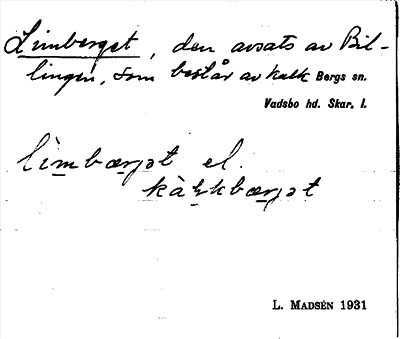 Limberget, den avsats av Bil-
lingen, som består av kalk Bergs sn.
Vadsbo hd. Skar. l.
lìmbærjət el.
kàḷkbærjət
L. MADSÉN 1931